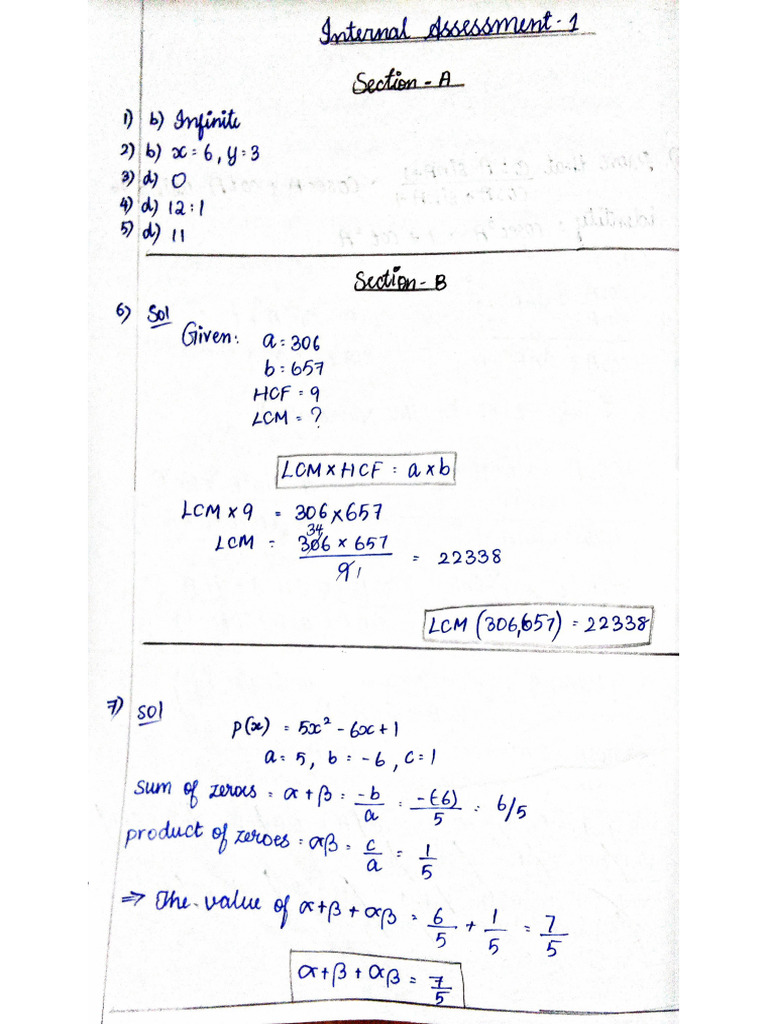 Internal Assessment-1
Section-A
1) b) Infinite
2) b) x=6, y=3
3) d) 0
4) d) 12:1
5) d) 11
Section-B
6) Sol
Given: a=306
b=657
HCF=9
LCM=?
LCM×HCF = a×b
LCM×9 = 306×657
34
LCM = 306×657/9 1 = 22338
LCM(306,657)=22338
7) Sol
P(x) = 5x²-6x+1
a=5, b=-6, c=1
sum of zeroes = α+β = -b/a = -(-6)/5 = 6/5
product of zeroes = αβ = c/a = 1/5
⇒ The value of α+β+αβ = 6/5 + 1/5 = 7/5
α+β+αβ = 7/5